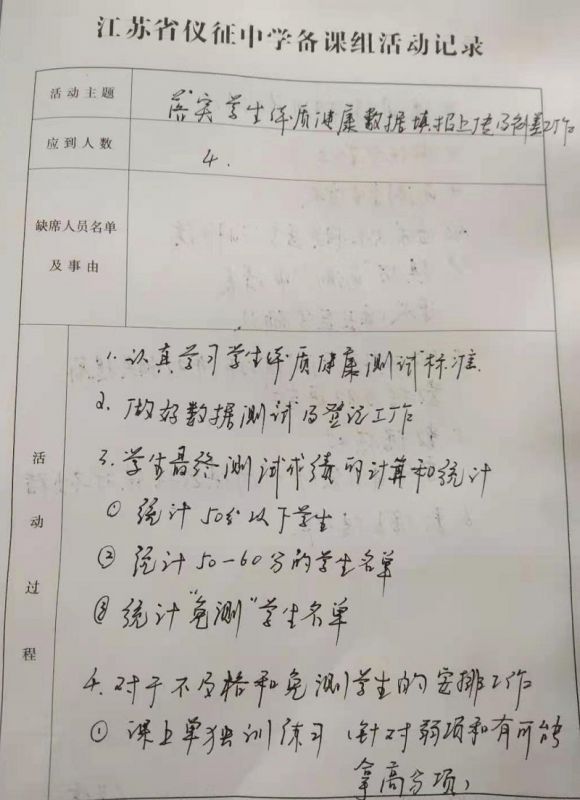 江苏省仪征中学备课组活动记录
活动主题
落实学生体质健康数据填报上传及补差工作
应到人数
4.
缺席人员名单
及事由
活动过程
1. 认真学习学生体质健康测试标准.
2. 做好数据测试及登记工作
3. 学生最终测试成绩的计算和统计
① 统计50分以下学生.
② 统计50—60分的学生名单
③ 统计“免测”学生名单
4. 对于不及格和免测学生的安排工作
① 课上单独训练习(针对弱项和有可能
拿高分项)